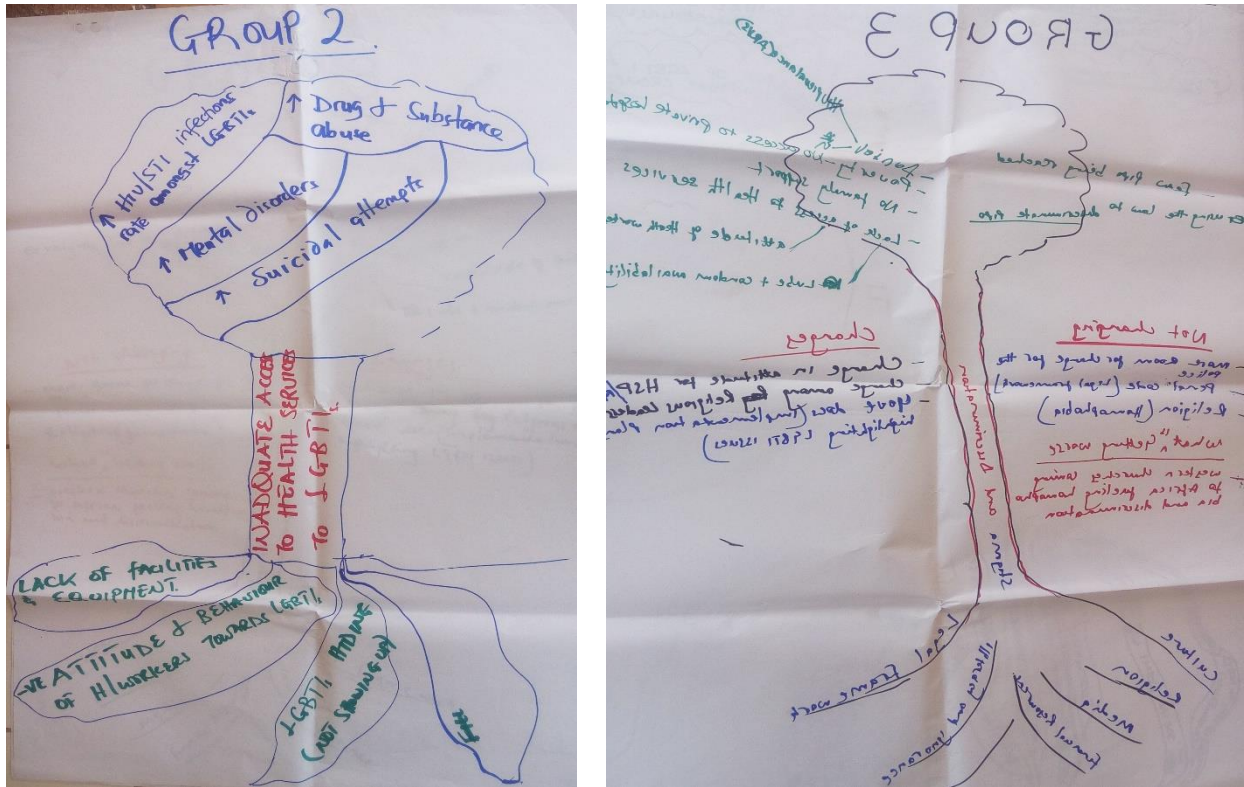 GROUP 2
↑ HIV/STI infections
rate amongst LGBTIs
↑ Drug & Substance
abuse
↑ Mental disorders
↑ Suicidal attempts
INADQUATE ACCESS
TO HEALTH SERVICES
TO LGBTIs
LACK OF FACILITIES
& EQUIPMENT.
-VE ATTITUDE & BEHAVIOUR
OF H/WORKERS TOWARDS LGBTIs
LGBTIs HIDING
(NOT SHOWING UP)
GROUP 3
Denial
- Poverty - No access to private
- No family support
- Lack of access to Health services
attitude of
Lube + condom
Few being reached
using the law to discriminate
Changes
- Change in attitude for
- Change among Religious Leaders
- Govt docs (Implementation
highlighting LGBTI issues)
Not changing
- more room for change for the
police
- Penal code (Legal framework)
- Religion (Homophobia)
What "getting worse
- western churches coming
to Africa fueling homopho
bia and discrimination
Stigma and Discrimination
Legal Framework
and ignorance
Media
Religion
Culture